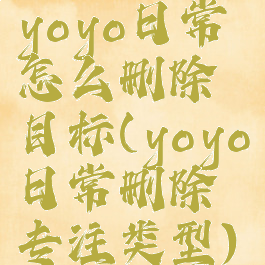 yoyo日常
怎么删除
目标(yoyo
日常删除
专注类型)